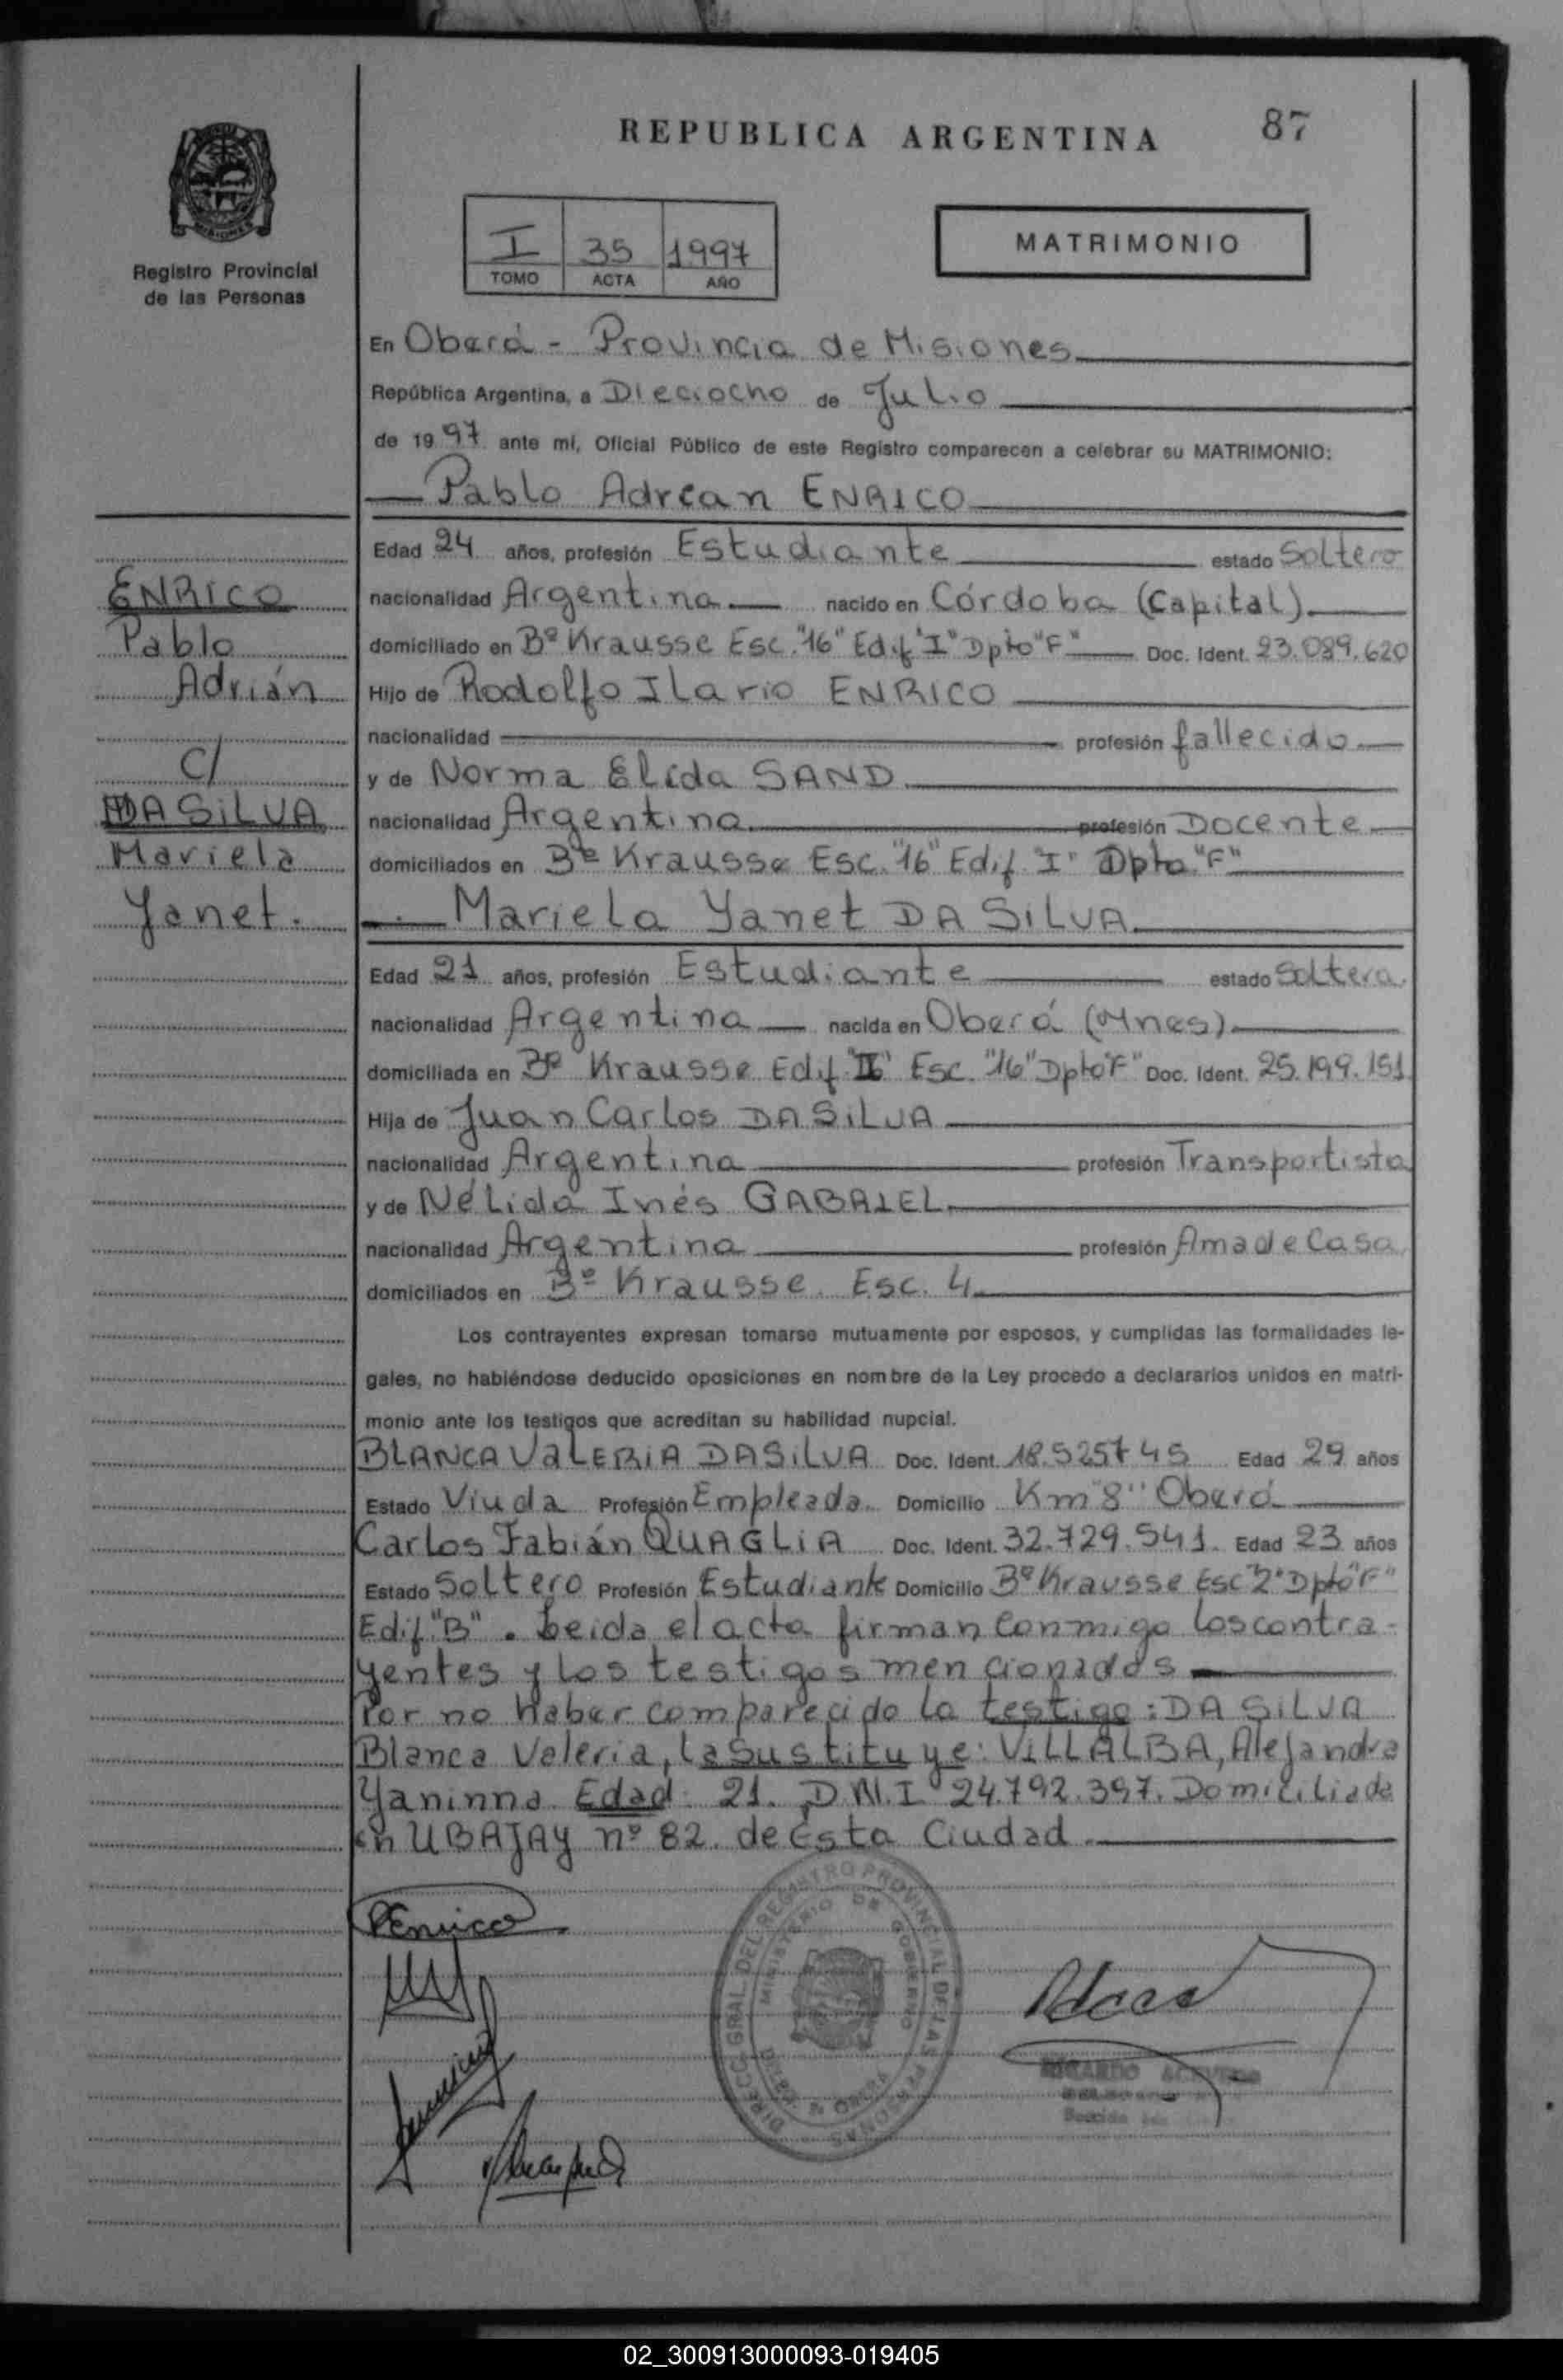 REPUBLICA ARGENTINA
87
Registro Provincial
de las Personas
I 35 1997
TOMO ACTA AÑO
MATRIMONIO
En Oberá - Provincia de Misiones
República Argentina, a Dieciocho de Julio
de 1997 ante mí, Oficial Público de este Registro comparecen a celebrar su MATRIMONIO:
Pablo Adrean ENRICO
Edad 24 años, profesión Estudiante estado Soltero
nacionalidad Argentina nacido en Córdoba (Capital)
domiciliado en Bº Krausse Esc. "16" Edif "I" Dpto "F" Doc. Ident. 23.089.620
Hijo de Rodolfo Ilario ENRICO
nacionalidad profesión fallecido
y de Norma Elida SAND
nacionalidad Argentina profesión Docente
domiciliados en Bº Krausse Esc. "16" Edif. "I" Dpto. "F"
Mariela Yanet DA SILVA
Edad 21 años, profesión Estudiante estado Soltera
nacionalidad Argentina nacida en Oberá (Mnes)
domiciliada en Bº Krausse Edif. Esc. "16" Dpto "F" Doc. Ident. 25.199.151
Hija de Juan Carlos DA SILVA
nacionalidad Argentina profesión Transportista
y de Nélida Inés GABRIEL
nacionalidad Argentina profesión Ama de Casa
domiciliados en Bº Krausse. Esc. 4
Los contrayentes expresan tomarse mutuamente por esposos, y cumplidas las formalidades le-
gales, no habiéndose deducido oposiciones en nombre de la Ley procedo a declararlos unidos en matri-
monio ante los testigos que acreditan su habilidad nupcial.
BLANCA VALERIA DA SILVA Doc. Ident. 18.525745 Edad 29 años
Estado Viuda Profesión Empleada. Domicilio Km "8" Oberá
Carlos Fabián QUAGLIA Doc. Ident. 32.729.541. Edad 23 años
Estado Soltero Profesión Estudiante Domicilio Bº Krausse Esc "2" Dpto "F"
Edif. "B". Leida el acta firman conmigo los contra-
yentes y los testigos mencionados
Por no haber comparecido la testigo: DA SILVA
Blanca Valeria, la sustituye: VILLALBA, Alejandra
Yaninna Edad: 21. D.N.I 24.792.397. Domiciliada
en UBAJAY nº 82. de Esta Ciudad
ENRICO
Pablo
Adrián
C/
DA SILVA
Mariela
Yanet.
PEnrico
DIRECC. GRAL. DEL REGISTRO PROVINCIAL DE LAS PERSONAS
MINISTERIO DE GOBIERNO
OBERA
RICARDO ACEVEDO
02_300913000093-019405